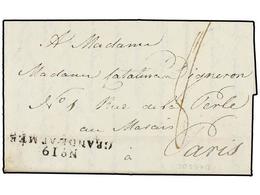 A Madame
Madame Catalina Vigneron
N° 1 Rue de la Perle
au Marais
à Paris
No. 19
GRANDE ARMÉE